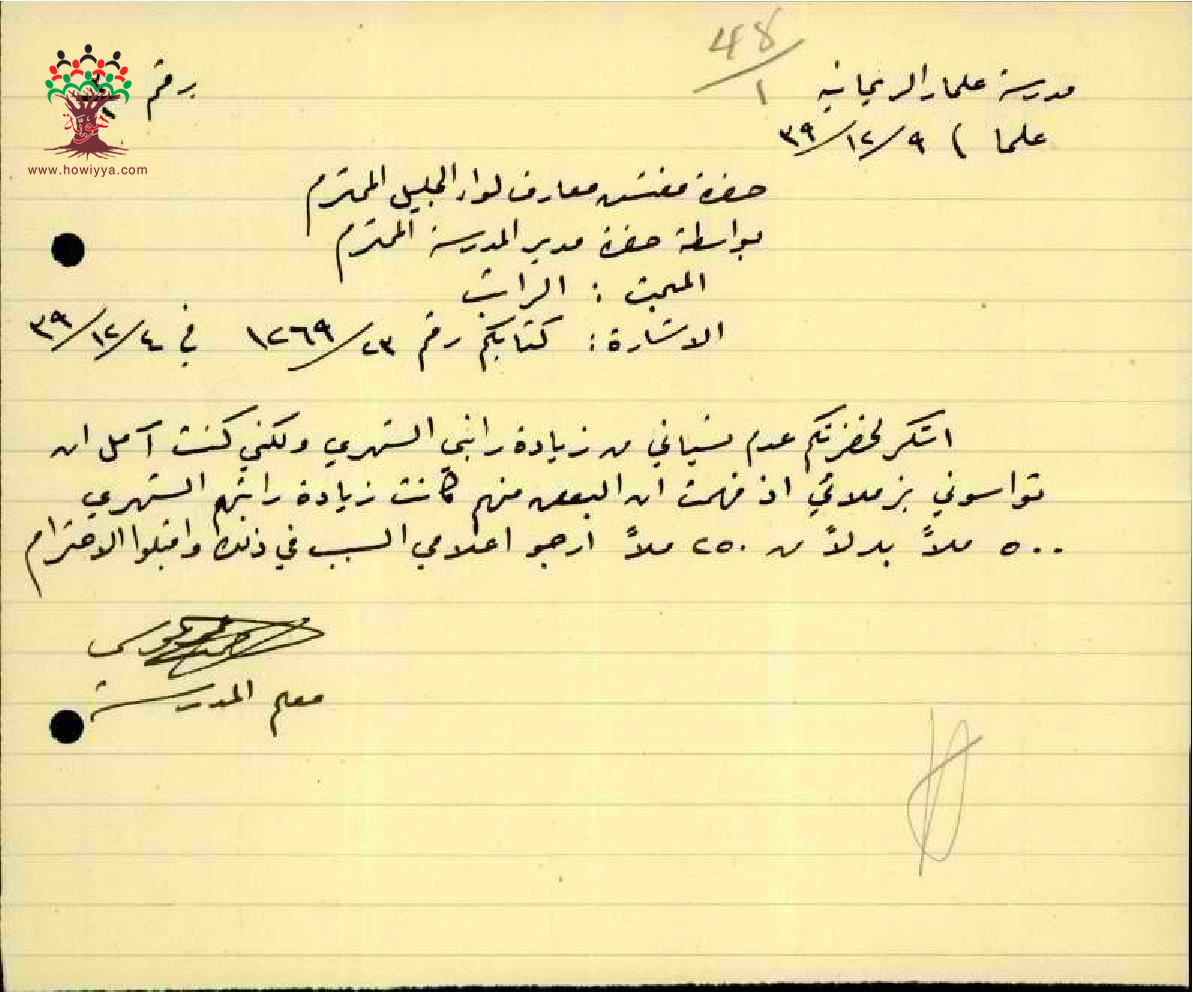 48/1
مدرسة علما الريحانيه
رقم
علما ) ٩/١٢/٣٩
حضرة مفتش معارف لواء الجليل المحترم
بواسطة حضرة مدير المدرسة المحترم
المبحث : الراتب
الاشارة : كتابكم رقم ٢٣/١٢٦٩ في ٤/١٢/٣٩
اشكر لحضرتكم عدم نسياني من زيادة راتبي الشهري ولكني كنت آمل ان
تواسوني بزملائي اذ فهمت ان البعض منهم كانت زيادة راتبهم الشهري
٥٠٠ ملاً بدلاً من ٢٥٠ ملاً ارجو اعلامي السبب في ذلك واقبلوا الاحترام
معلم المدرسة
هوية
www.howiyya.com